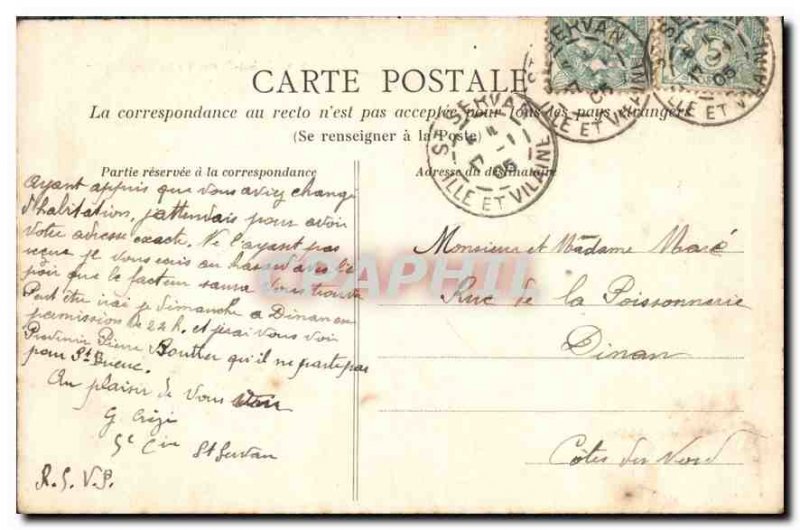 CARTE POSTALE
La correspondance au recto n'est pas acceptée pour tous les pays étrangers
(Se renseigner à la Poste)
Partie réservée à la correspondance
Adresse du destinataire
ST SERVAN
17 -1 05
ILLE ET VILAINE
Ayant appris que vous aviez changé
d'habitation, j'attendais pour avoir
votre adresse exacte. Ne l'ayant pas
reçue je vous écris au hasard avec l'es
poir que le facteur saura vous trouver
Peut être irai je dimanche a Dinan en
permission de 24 h. et j'irai vous voir
Prévenir Pierre Boutier qu'il ne parte pas
pour St Brieuc.
Au plaisir de vous
G.
St Servan
R.S.V.P.
Monsieur et Madame Maré
Rue de la Poissonnerie
Dinan
Côtes du Nord
CPAPHIL